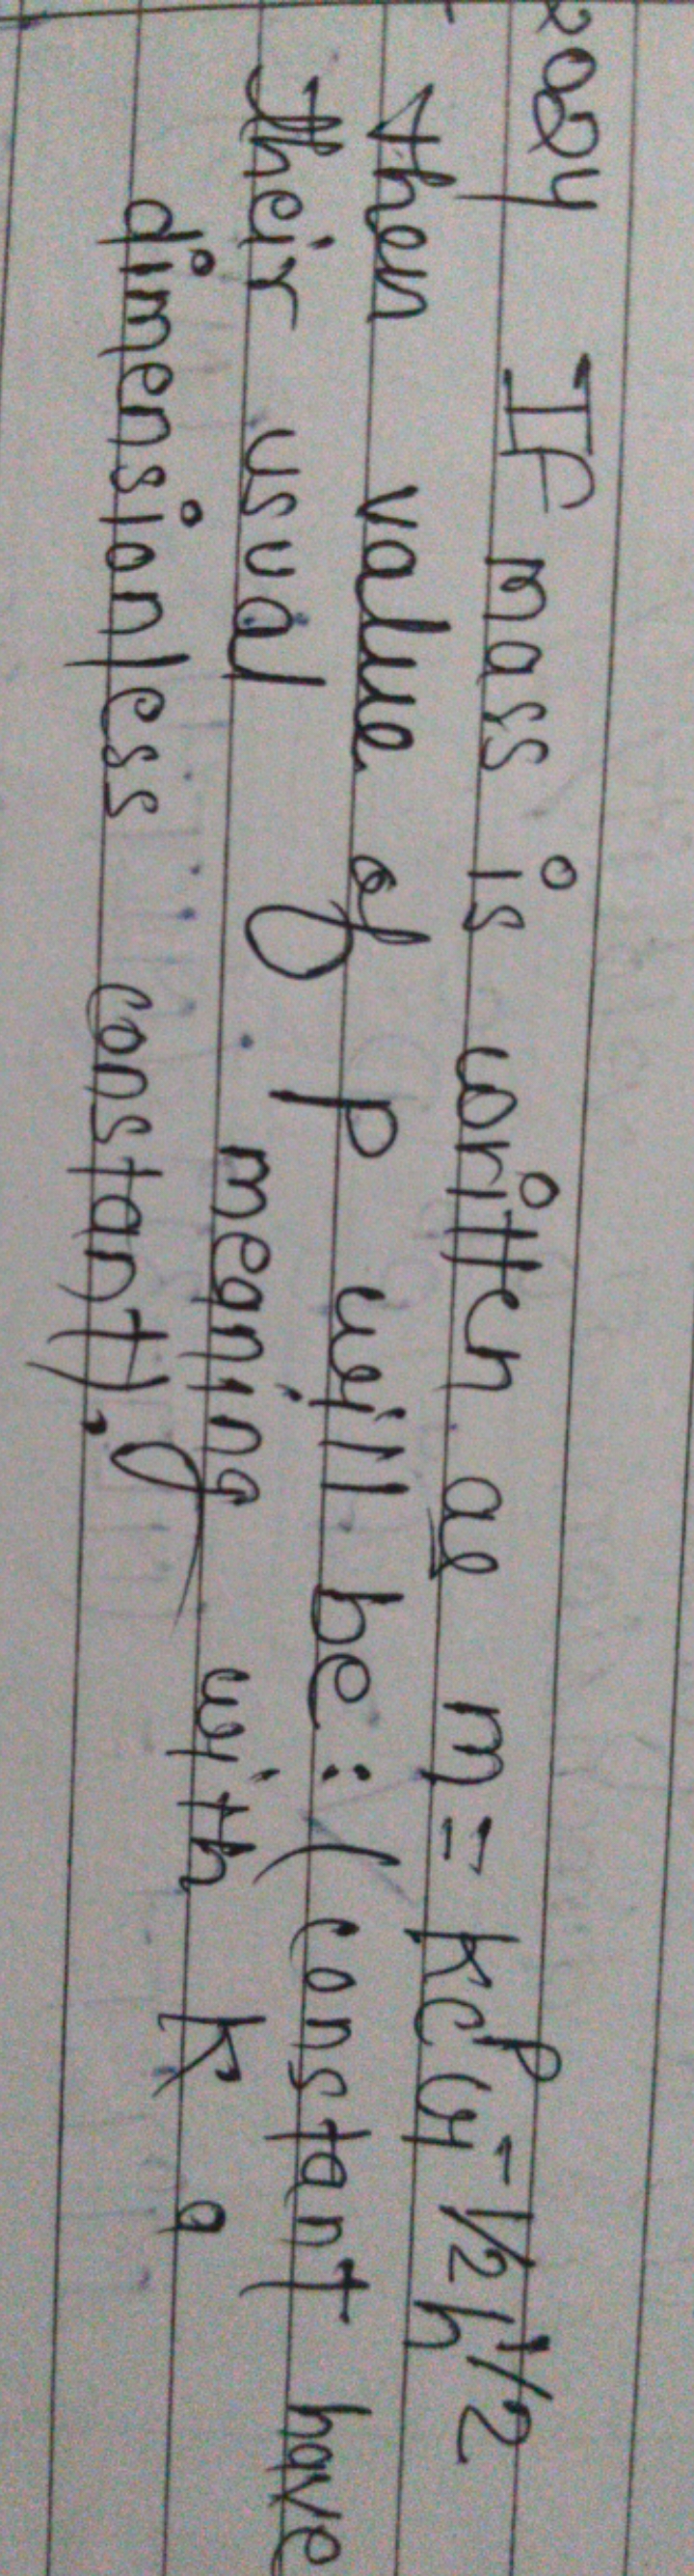 2024 If mass is written as m = kcᴾG⁻¹/²h¹/²
then value of P will be : (constant have
their usual meaning with K a
dimensionless constant).